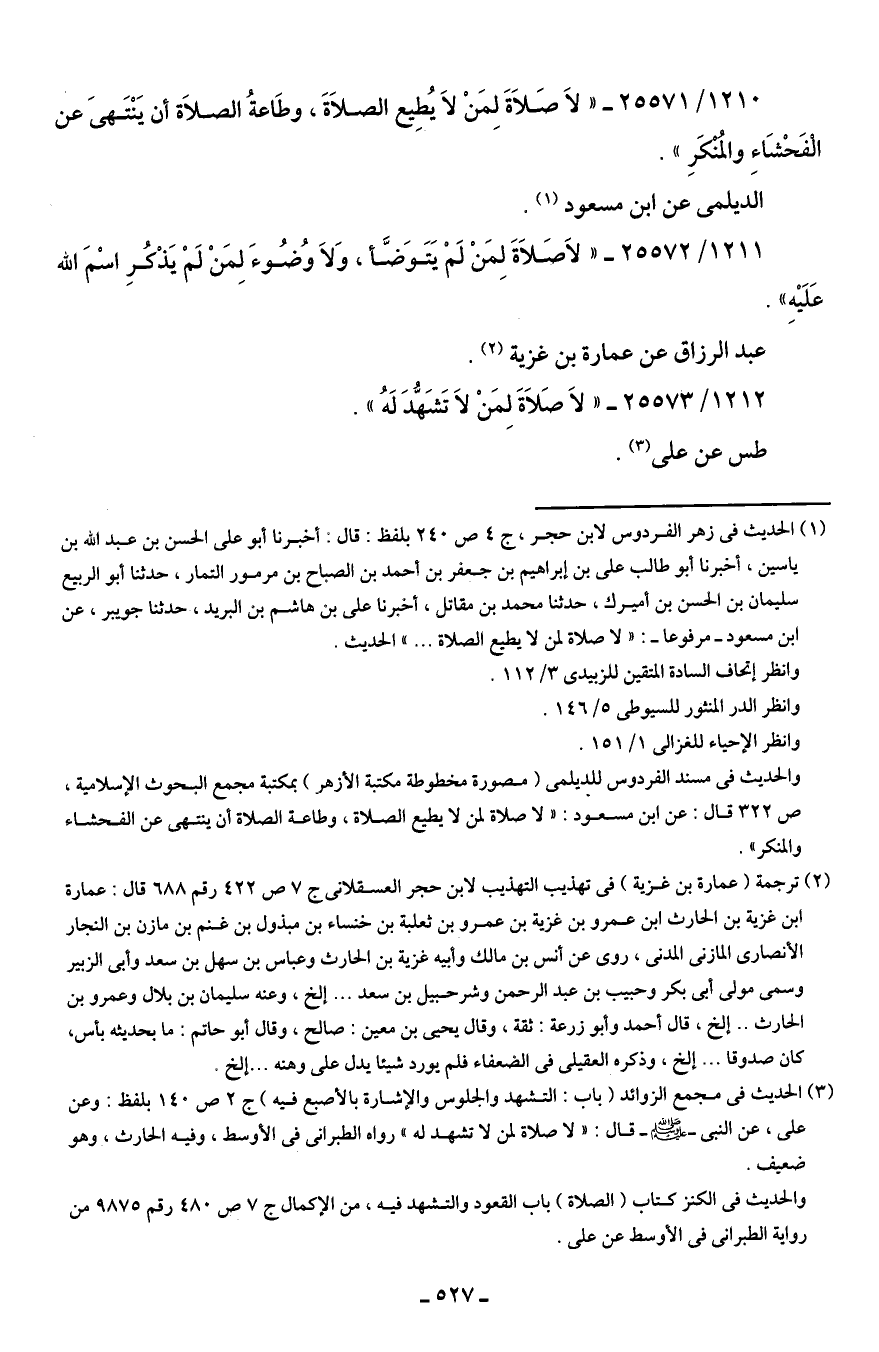 ١٢١٠/ ٢٥٥٧١ ـ « لاَ صَلاَةَ لِمَنْ لاَ يُطِيع الصلاَةَ ، وطَاعةُ الصلاَة أن يَنْتَهىَ عن
الْفَحْشَاءِ والْمُنْكَرِ » .
الديلمى عن ابن مسعود (١) .
١٢١١/ ٢٥٥٧٢ ـ « لاَصَلاَةَ لِمَنْ لَمْ يَتَوَضَّأ ، وَلاَ وُضُوءَ لِمَنْ لَمْ يَذْكُرِ اسْمَ الله
عَلَيْهِ» .
عبد الرزاق عن عمارة بن غزية (٢) .
١٢١٢/ ٢٥٥٧٣ ـ « لاَ صَلاَةَ لِمَنْ لاَ تَشَهُّدَ لَهُ » .
طس عن على(٣) .
(١) الحديث فى زهر الفردوس لابن حجر ، ج ٤ ص ٢٤٠ بلفظ : قال : أخبرنا أبو على الحسن بن عبد الله بن
ياسين ، أخبرنا أبو طالب على بن إبراهيم بن جعفر بن أحمد بن الصباح بن مرمور التمار ، حدثنا أبو الربيع
سليمان بن الحسن بن أميرك ، حدثنا محمد بن مقاتل ، أخبرنا على بن هاشم بن البريد ، حدثنا جويبر ، عن
ابن مسعود ـ مرفوعا ـ : « لا صلاة لمن لا يطيع الصلاة ... » الحديث .
وانظر إتحاف السادة المتقين للزبيدى ٣/ ١١٢ .
وانظر الدر المنثور للسيوطى ٥/ ١٤٦ .
وانظر الإحياء للغزالى ١/ ١٥١ .
والحديث فى مسند الفردوس للديلمى ( مصورة مخطوطة مكتبة الأزهر ) بمكتبة مجمع البحوث الإسلامية ،
ص ٣٢٢ قال : عن ابن مسعود : « لا صلاة لمن لا يطيع الصلاة ، وطاعة الصلاة أن ينتهى عن الفحشاء
والمنكر» .
(٢) ترجمة ( عمارة بن غزية ) فى تهذيب التهذيب لابن حجر العسقلانى ج ٧ ص ٤٢٢ رقم ٦٨٨ قال : عمارة
ابن غزية بن الحارث ابن عمرو بن غزية بن عمرو بن ثعلبة بن خنساء بن مبذول بن غنم بن مازن بن النجار
الأنصارى المازنى المدنى ، روى عن أنس بن مالك وأبيه غزية بن الحارث وعباس بن سهل بن سعد وأبى الزبير
وسمى مولى أبى بكر وحبيب بن عبد الرحمن وشرحبيل بن سعد ... إلخ ، وعنه سليمان بن بلال وعمرو بن
الحارث .. إلخ ، قال أحمد وأبو زرعة : ثقة ، وقال يحيى بن معين : صالح ، وقال أبو حاتم : ما بحديثه بأس،
كان صدوقا ... إلخ ، وذكره العقيلى فى الضعفاء فلم يورد شيئا يدل على وهنه ...إلخ .
(٣) الحديث فى مجمع الزوائد ( باب : التشهد والجلوس والإشارة بالأصبع فيه ) ج ٢ ص ١٤٠ بلفظ : وعن
على ، عن النبى ـ ﷺ ـ قال : « لا صلاة لمن لا تشهد له » رواه الطبرانى فى الأوسط ، وفيه الحارث ، وهو
ضعيف .
والحديث فى الكنز كتاب ( الصلاة ) باب القعود والتشهد فيه ، من الإكمال ج ٧ ص ٤٨٠ رقم ٩٨٧٥ من
رواية الطبرانى فى الأوسط عن على .
ـ ٥٢٧ ـ